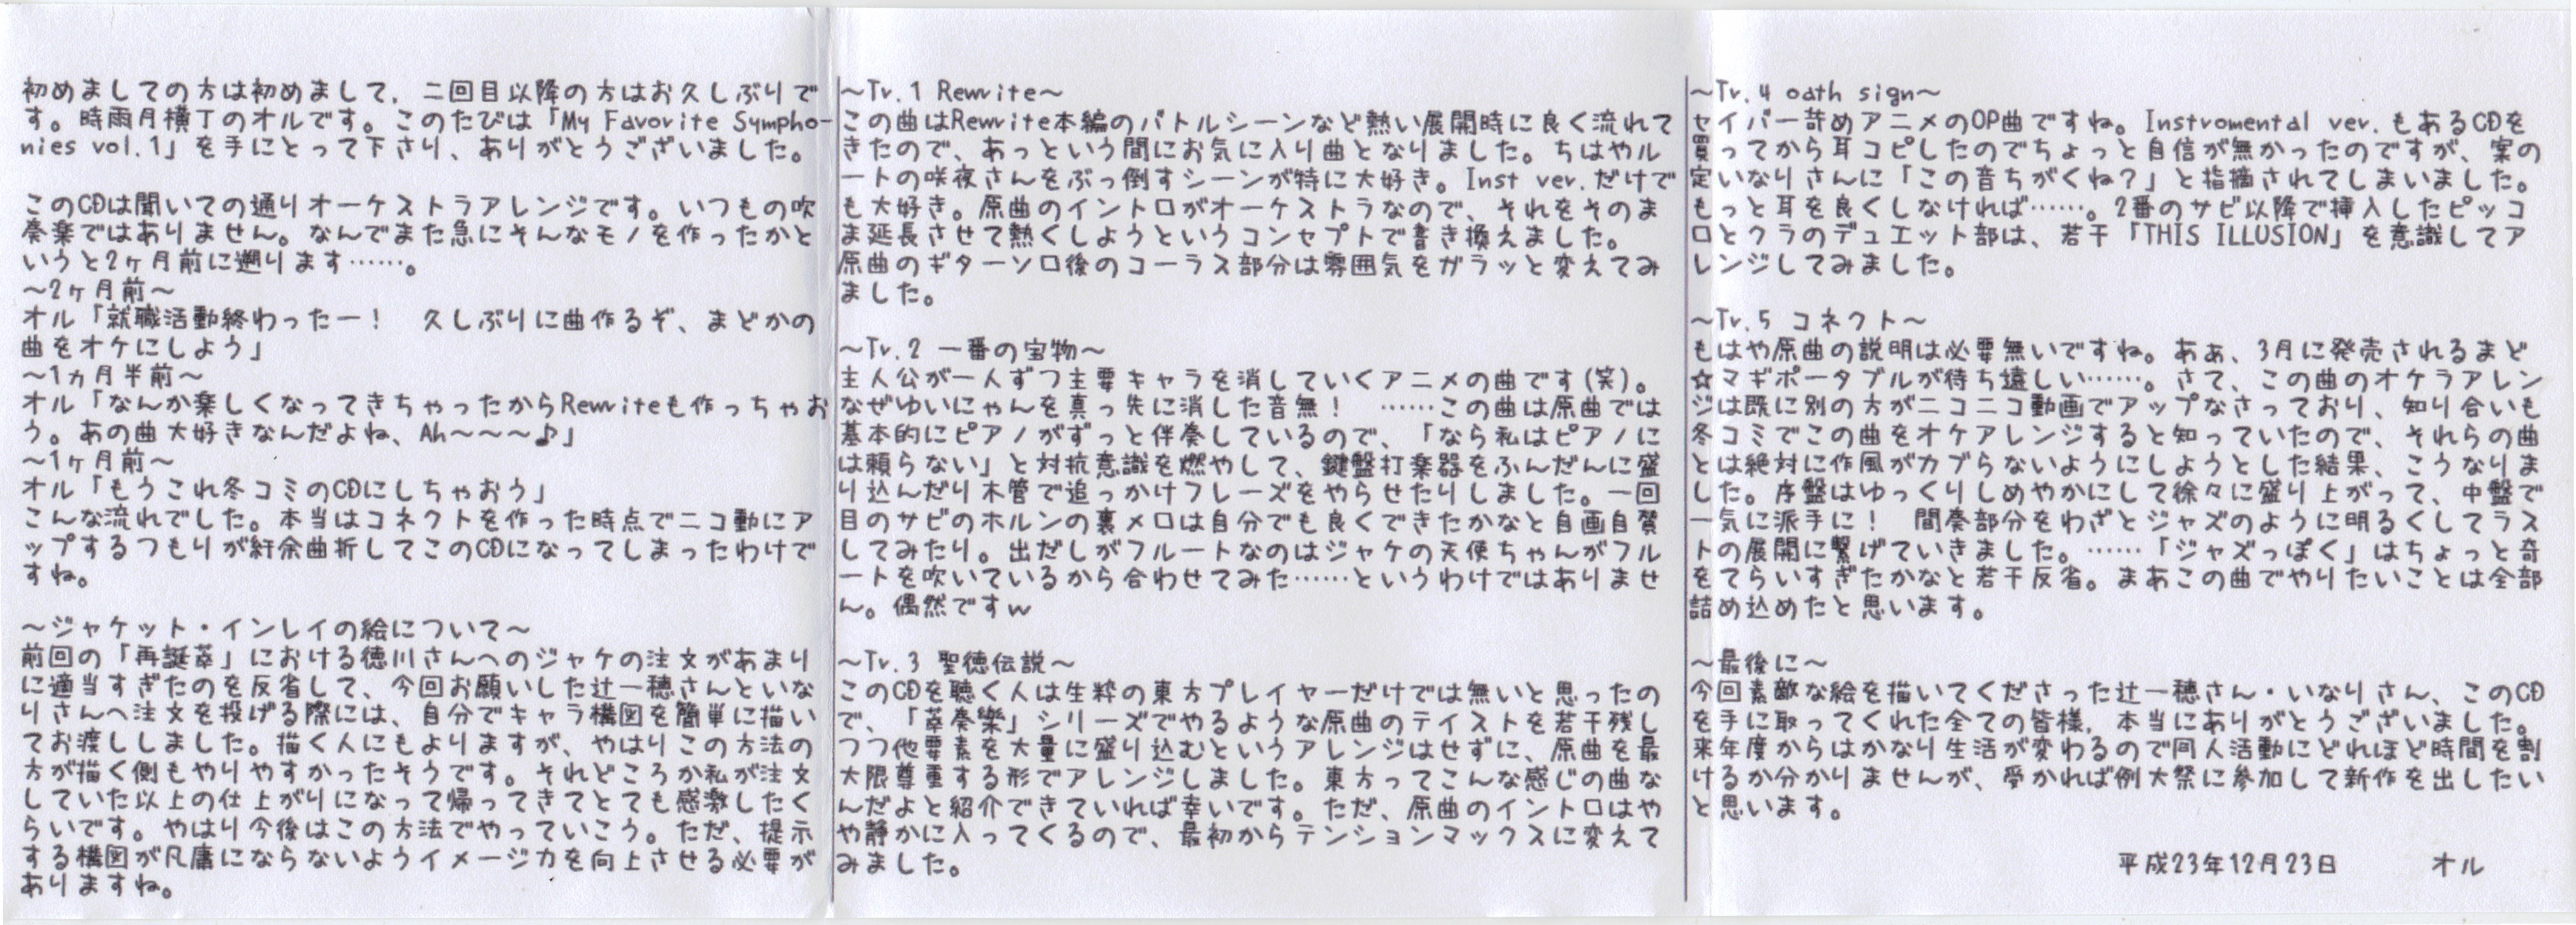 初めましての方は初めまして、二回目以降の方はお久しぶりで
す。時雨月横丁のオルです。このたびは「My Favorite Sympho-
nies vol.1」を手にとって下さり、ありがとうございました。
このCDは聞いての通りオーケストラアレンジです。いつもの吹
奏楽ではありません。なんでまた急にそんなモノを作ったかと
いうと2ヶ月前に遡ります……。
～2ヶ月前～
オル「就職活動終わったー！　久しぶりに曲作るぞ、まどかの
曲をオケにしよう」
～1ヵ月半前～
オル「なんか楽しくなってきちゃったからRewriteも作っちゃお
う。あの曲大好きなんだよね、Ah～～～♪」
～1ヶ月前～
オル「もうこれ冬コミのCDにしちゃおう」
こんな流れでした。本当はコネクトを作った時点でニコ動にア
ップするつもりが紆余曲折してこのCDになってしまったわけで
すね。
～ジャケット・インレイの絵について～
前回の「再誕萃」における徳川さんへのジャケの注文があまり
に適当すぎたのを反省して、今回お願いした辻一穂さんといな
りさんへ注文を投げる際には、自分でキャラ構図を簡単に描い
てお渡ししました。描く人にもよりますが、やはりこの方法の
方が描く側もやりやすかったそうです。それどころか私が注文
していた以上の仕上がりになって帰ってきてとても感激したく
らいです。やはり今後はこの方法でやっていこう。ただ、提示
する構図が凡庸にならないようイメージ力を向上させる必要が
ありますね。
～Tr.1 Rewrite～
この曲はRewrite本編のバトルシーンなど熱い展開時に良く流れて
きたので、あっという間にお気に入り曲となりました。ちはやル
ートの咲夜さんをぶっ倒すシーンが特に大好き。Inst ver.だけで
も大好き。原曲のイントロがオーケストラなので、それをそのま
ま延長させて熱くしようというコンセプトで書き換えました。
原曲のギターソロ後のコーラス部分は雰囲気をガラッと変えてみ
ました。
～Tr.2 一番の宝物～
主人公が一人ずつ主要キャラを消していくアニメの曲です(笑)。
なぜゆいにゃんを真っ先に消した音無！　……この曲は原曲では
基本的にピアノがずっと伴奏しているので、「なら私はピアノに
は頼らない」と対抗意識を燃やして、鍵盤打楽器をふんだんに盛
り込んだり木管で追っかけフレーズをやらせたりしました。一回
目のサビのホルンの裏メロは自分でも良くできたかなと自画自賛
してみたり。出だしがフルートなのはジャケの天使ちゃんがフル
ートを吹いているから合わせてみた……というわけではありませ
ん。偶然ですw
～Tr.3 聖徳伝説～
このCDを聴く人は生粋の東方プレイヤーだけでは無いと思ったの
で、「萃奏樂」シリーズでやるような原曲のテイストを若干残し
つつ他要素を大量に盛り込むというアレンジはせずに、原曲を最
大限尊重する形でアレンジしました。東方ってこんな感じの曲な
んだよと紹介できていれば幸いです。ただ、原曲のイントロはや
や静かに入ってくるので、最初からテンションマックスに変えて
みました。
～Tr.4 oath sign～
セイバー苛めアニメのOP曲ですね。Instromental ver.もあるCDを
買ってから耳コピしたのでちょっと自信が無かったのですが、案の
定いなりさんに「この音ちがくね？」と指摘されてしまいました。
もっと耳を良くしなければ……。2番のサビ以降で挿入したピッコ
ロとクラのデュエット部は、若干「THIS ILLUSION」を意識してア
レンジしてみました。
～Tr.5 コネクト～
もはや原曲の説明は必要無いですね。ああ、3月に発売されるまど
☆マギポータブルが待ち遠しい……。さて、この曲のオケラアレン
ジは既に別の方がニコニコ動画でアップなさっており、知り合いも
冬コミでこの曲をオケアレンジすると知っていたので、それらの曲
とは絶対に作風がカブらないようにしようとした結果、こうなりま
した。序盤はゆっくりしめやかにして徐々に盛り上がって、中盤で
一気に派手に！　間奏部分をわざとジャズのように明るくしてラス
トの展開に繋げていきました。……「ジャズっぽく」はちょっと奇
をてらいすぎたかなと若干反省。まあこの曲でやりたいことは全部
詰め込めたと思います。
～最後に～
今回素敵な絵を描いてくださった辻一穂さん・いなりさん、このCD
を手に取ってくれた全ての皆様、本当にありがとうございました。
来年度からはかなり生活が変わるので同人活動にどれほど時間を割
けるか分かりませんが、受かれば例大祭に参加して新作を出したい
と思います。
平成23年12月23日　　オル